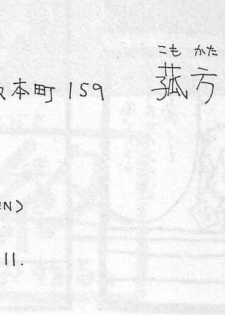 こも かた
本町 159 菰方
EN)
11.